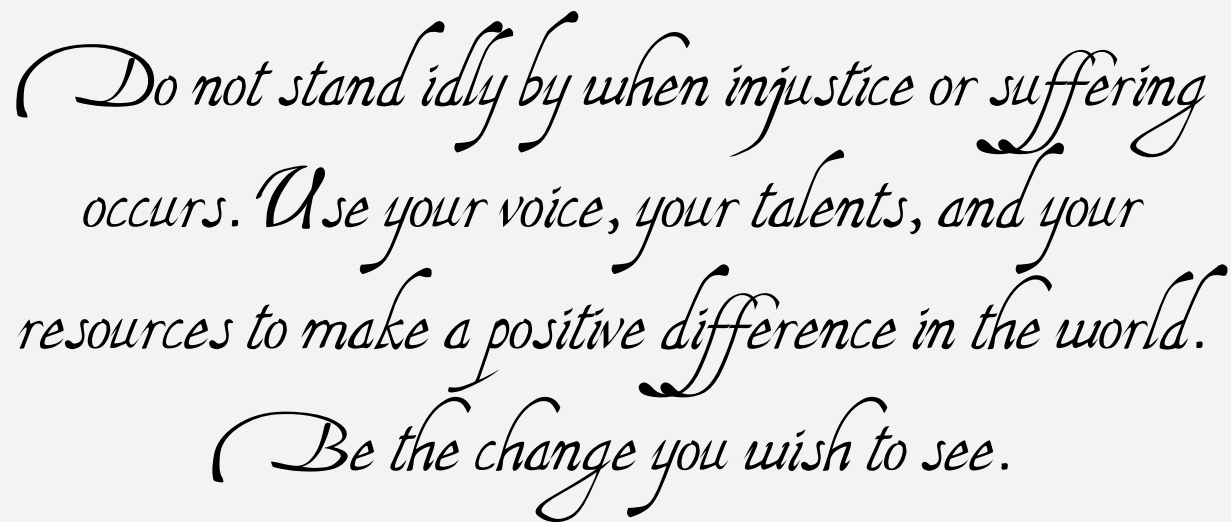 Do not stand idly by when injustice or suffering
occurs. Use your voice, your talents, and your
resources to make a positive difference in the world.
Be the change you wish to see.